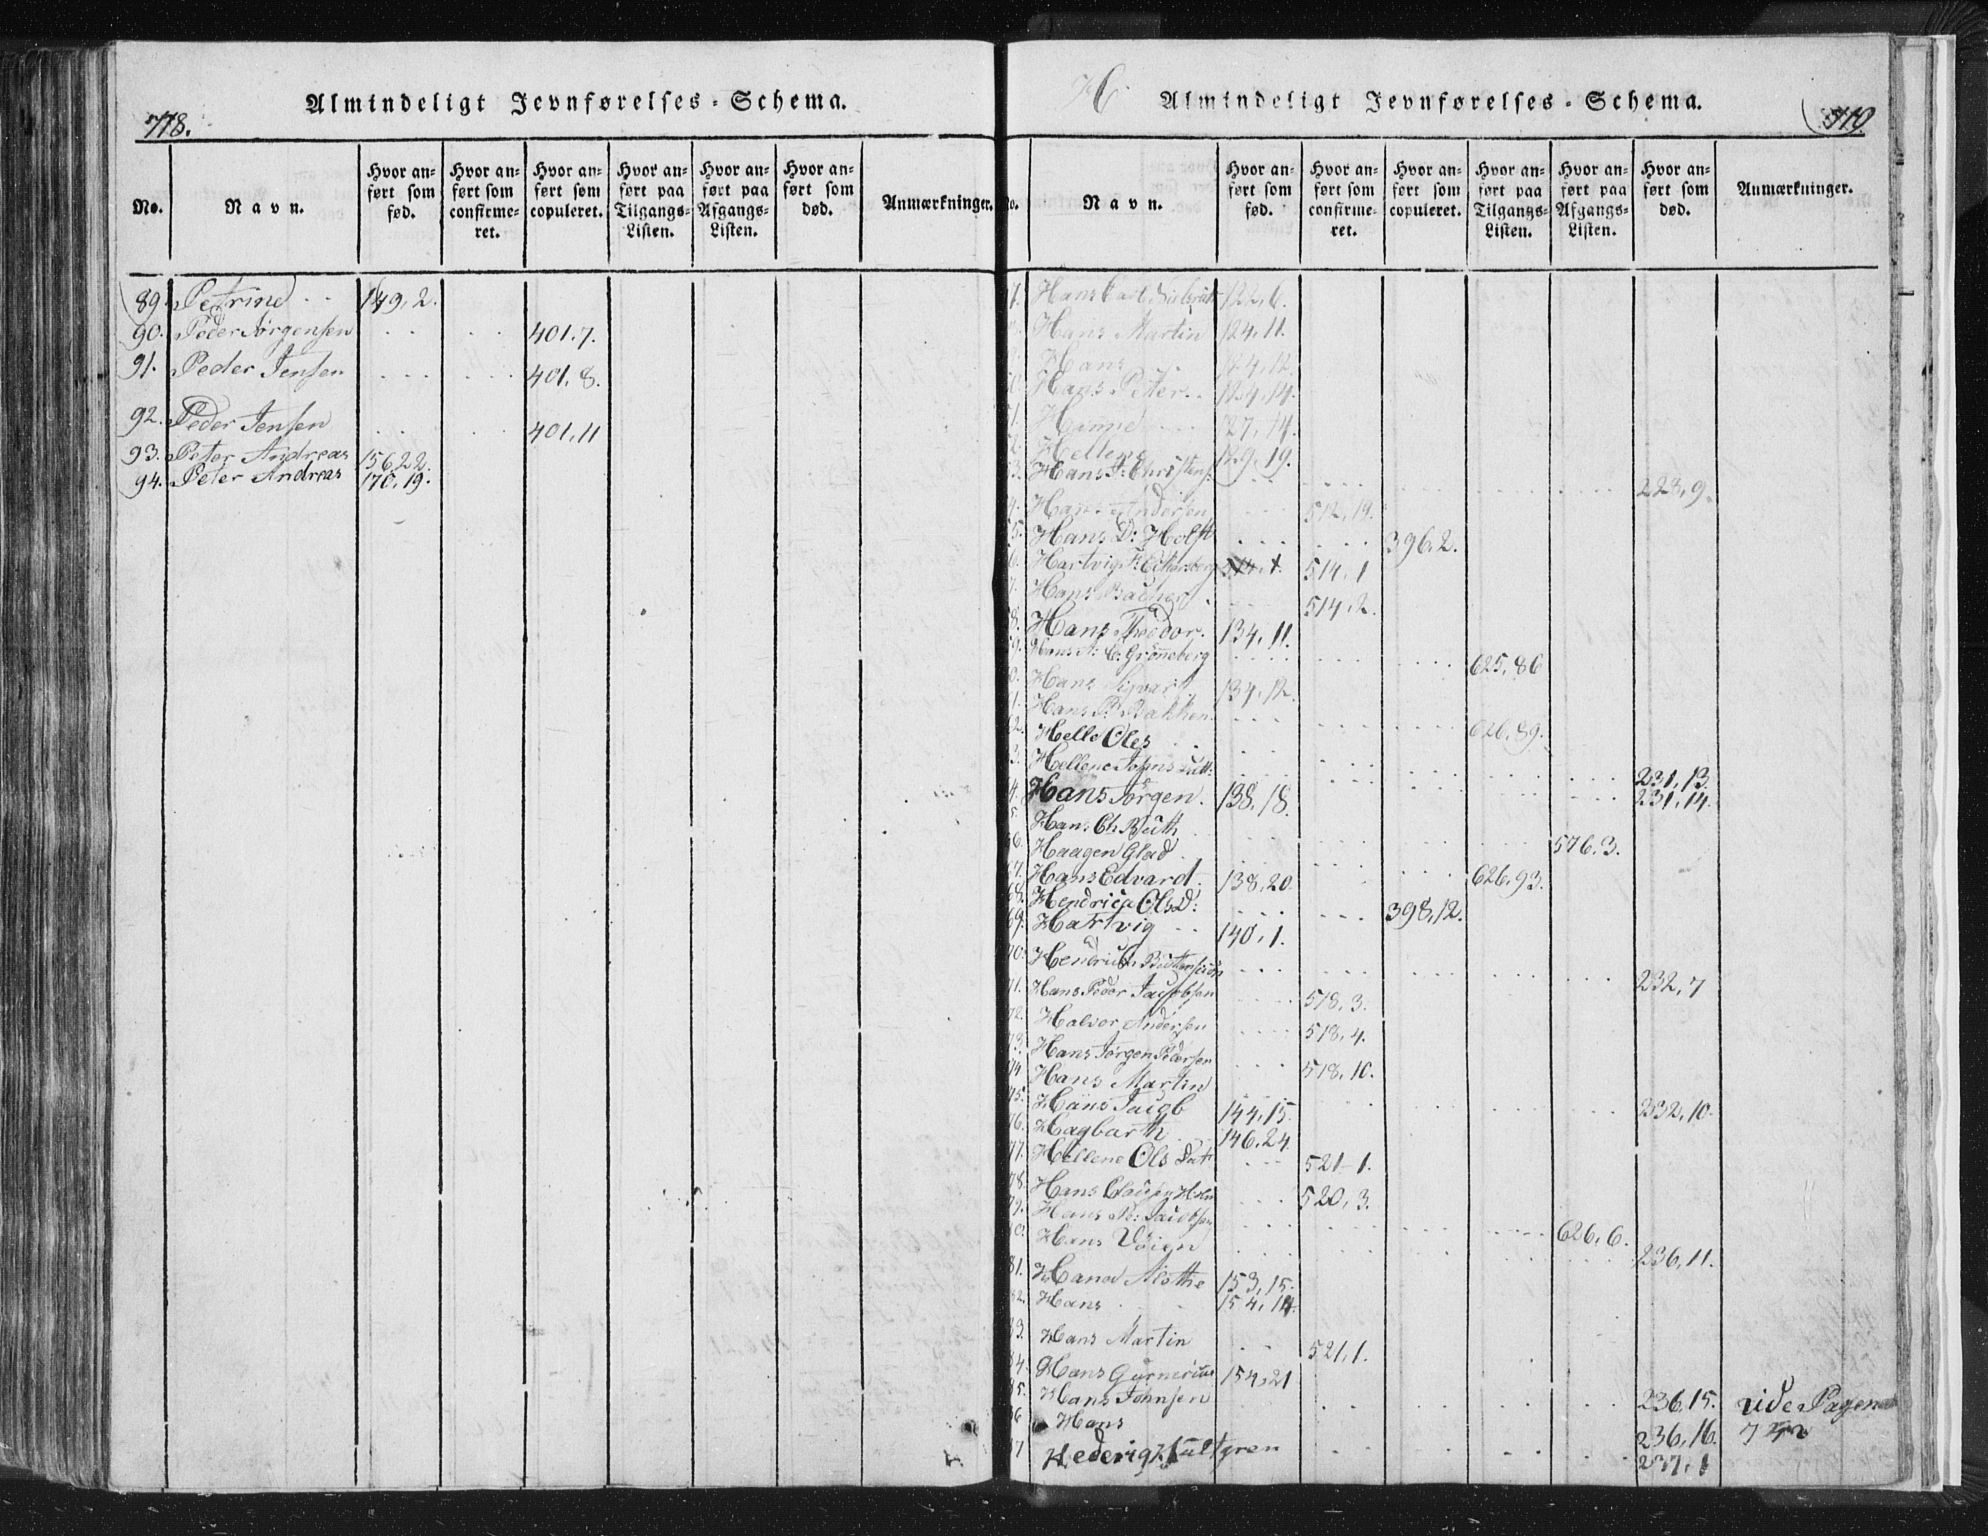 Almindeligt Jevnførelses-Schema.
778.
No. Navn. Hvor anført som fød. Hvor anført som confirmeret. Hvor anført som copuleret. Hvor anført paa Tilgangs-Listen. Hvor anført paa Afgangs-Listen. Hvor anført som død. Anmærkninger.
89. Petrine 149, 2.
90. Peder Jørgensen 401. 7.
91. Peder Jensen 401, 8.
92. Peder Jensen 401, 11
93. Peter Andreas 156, 22.
94. Peter Andreas 170, 19.
H. Almindeligt Jevnførelses-Schema.
719
No. Navn. Hvor anført som fød. Hvor anført som confirmeret. Hvor anført som copuleret. Hvor anført paa Tilgangs-Listen. Hvor anført paa Afgangs-Listen. Hvor anført som død. Anmærkninger.
Hans Carl 122, 6.
Hans Martin 124, 11.
Hans 124, 12.
Hans Peter 124, 14.
127, 14.
Hellene 129, 19.
Hans J: Christens: 228, 9.
Hans Andersen 512, 19.
5. Hans D: Holst 396, 2.
6. Hartvig F: Eckersberg 514, 1. 514, 1
7. Hans 514, 2.
8. Hans Theodor. 134, 11.
Hans A: C: Grönneberg 625, 86
Hans Sigvart 134, 12.
Hans P: Bakken 626, 89.
2. Helle Oles 231, 13.
3. Hellene Johns datt: 231, 14.
4. Hans Jörgen. 138, 18.
5. Hans Ch. Buth 576, 3.
6. Haagen Glad 626, 93.
7. Hans Edvard 138, 20.
68. Hendrica Ols D: 398, 12.
69. Hartvig 140, 1.
70. Hendrich 232, 7
71. Hans Peder Jacobsen 518, 3.
72. Halvor Andersen 518, 4.
73. Hans Jörgen Pedersen 518, 10.
74 Hans Martin 232, 10.
75. Hans Jacob 144, 15.
76. Hagbarth 146, 24
77. Hellene Ols Dat 521-1.
78. Hans Clausen Holm 520, 3.
79. Hans Pe: Jacobsen 626, 6.
80. Hans 236, 11.
81. Hana 153, 15.
82. Hans 154, 14.
83. Hans Martin 521, 1.
84. Hans Gunnerius 154, 21
85. Hans Johnsen 236, 15. vide Pagena
86 Hans 236, 16.
87 Hederig Hultgren 237, 1